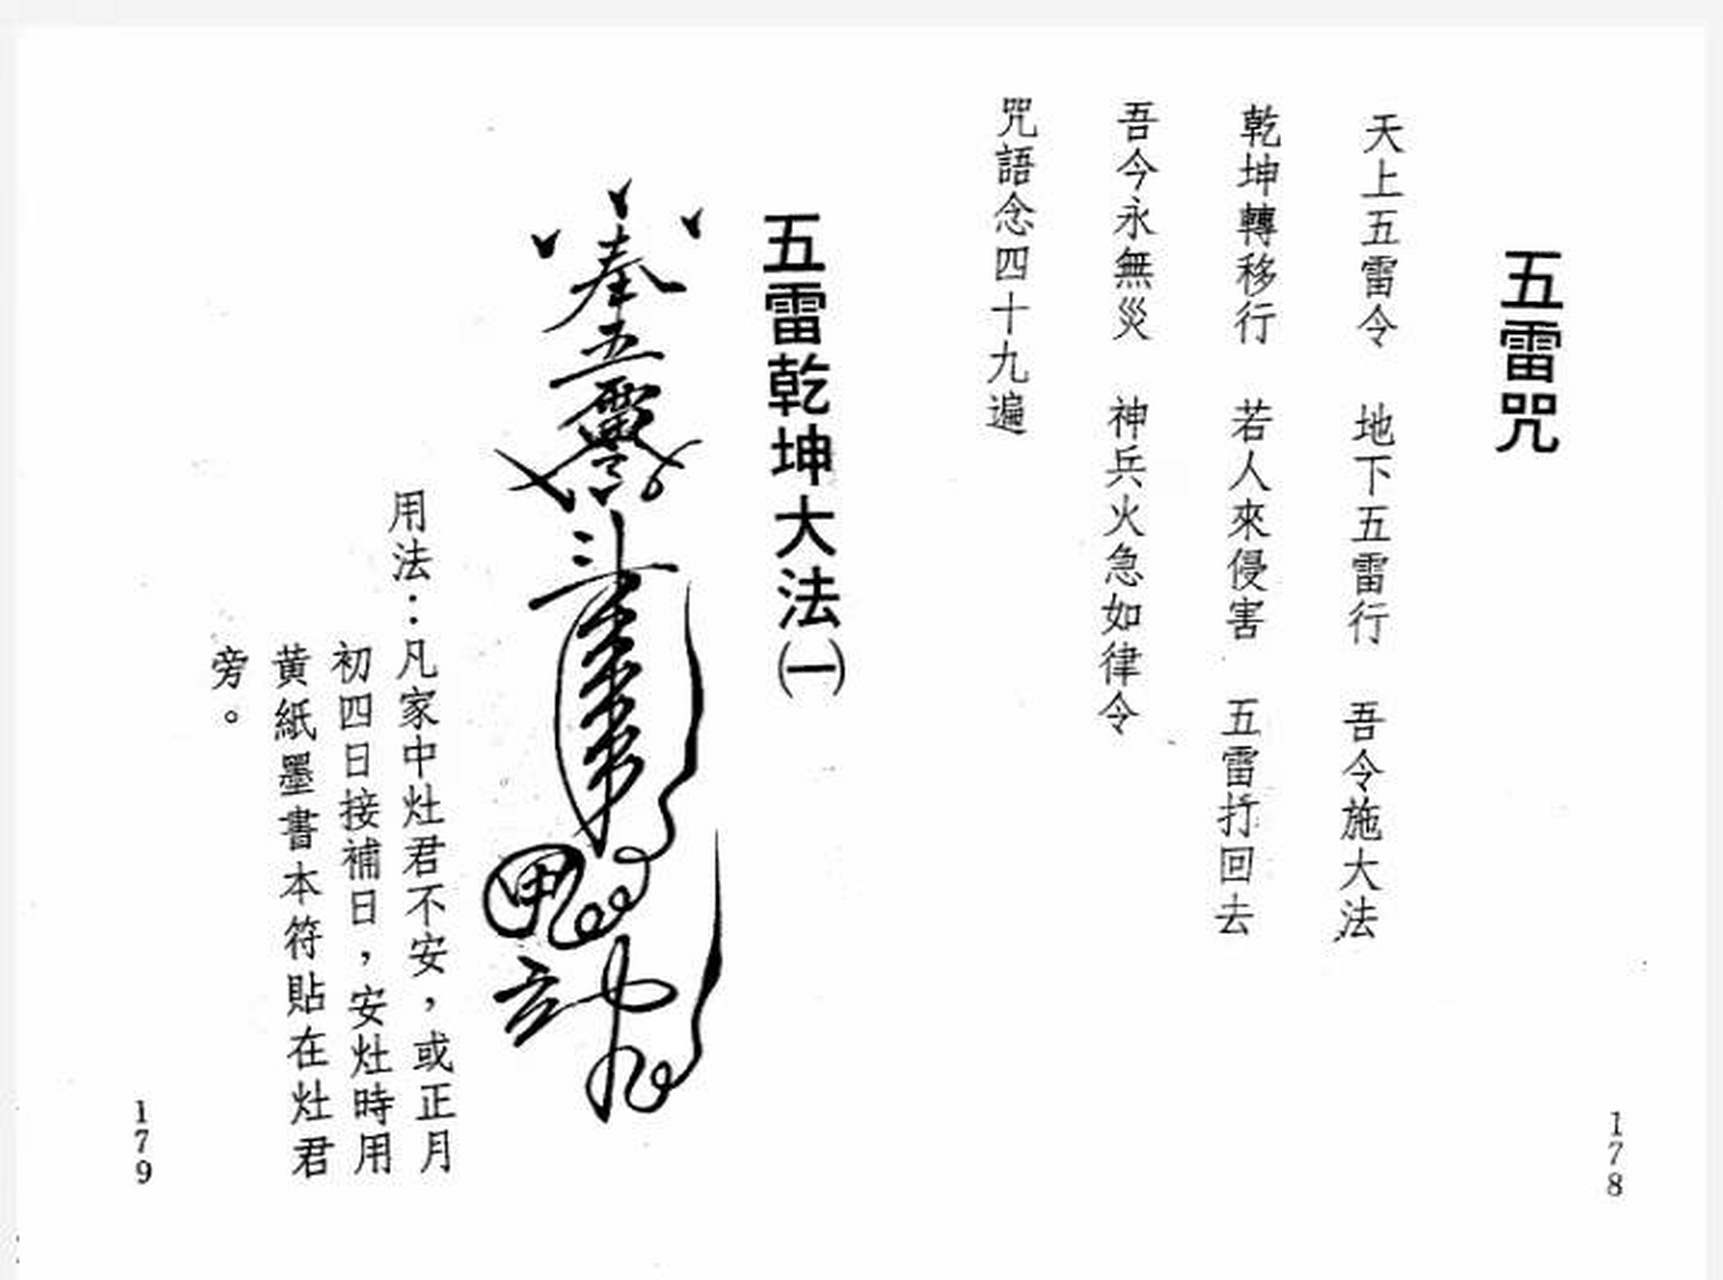 五雷咒
天上五雷令　地下五雷行　吾令施大法
乾坤轉移行　若人來侵害　五雷打回去
吾今永無災　神兵火急如律令
咒語念四十九遍
178
五雷乾坤大法㈠
奉五雷
用法：凡家中灶君不安，或正月
初四日接補日，安灶時用
黃紙墨書本符貼在灶君
旁。
179